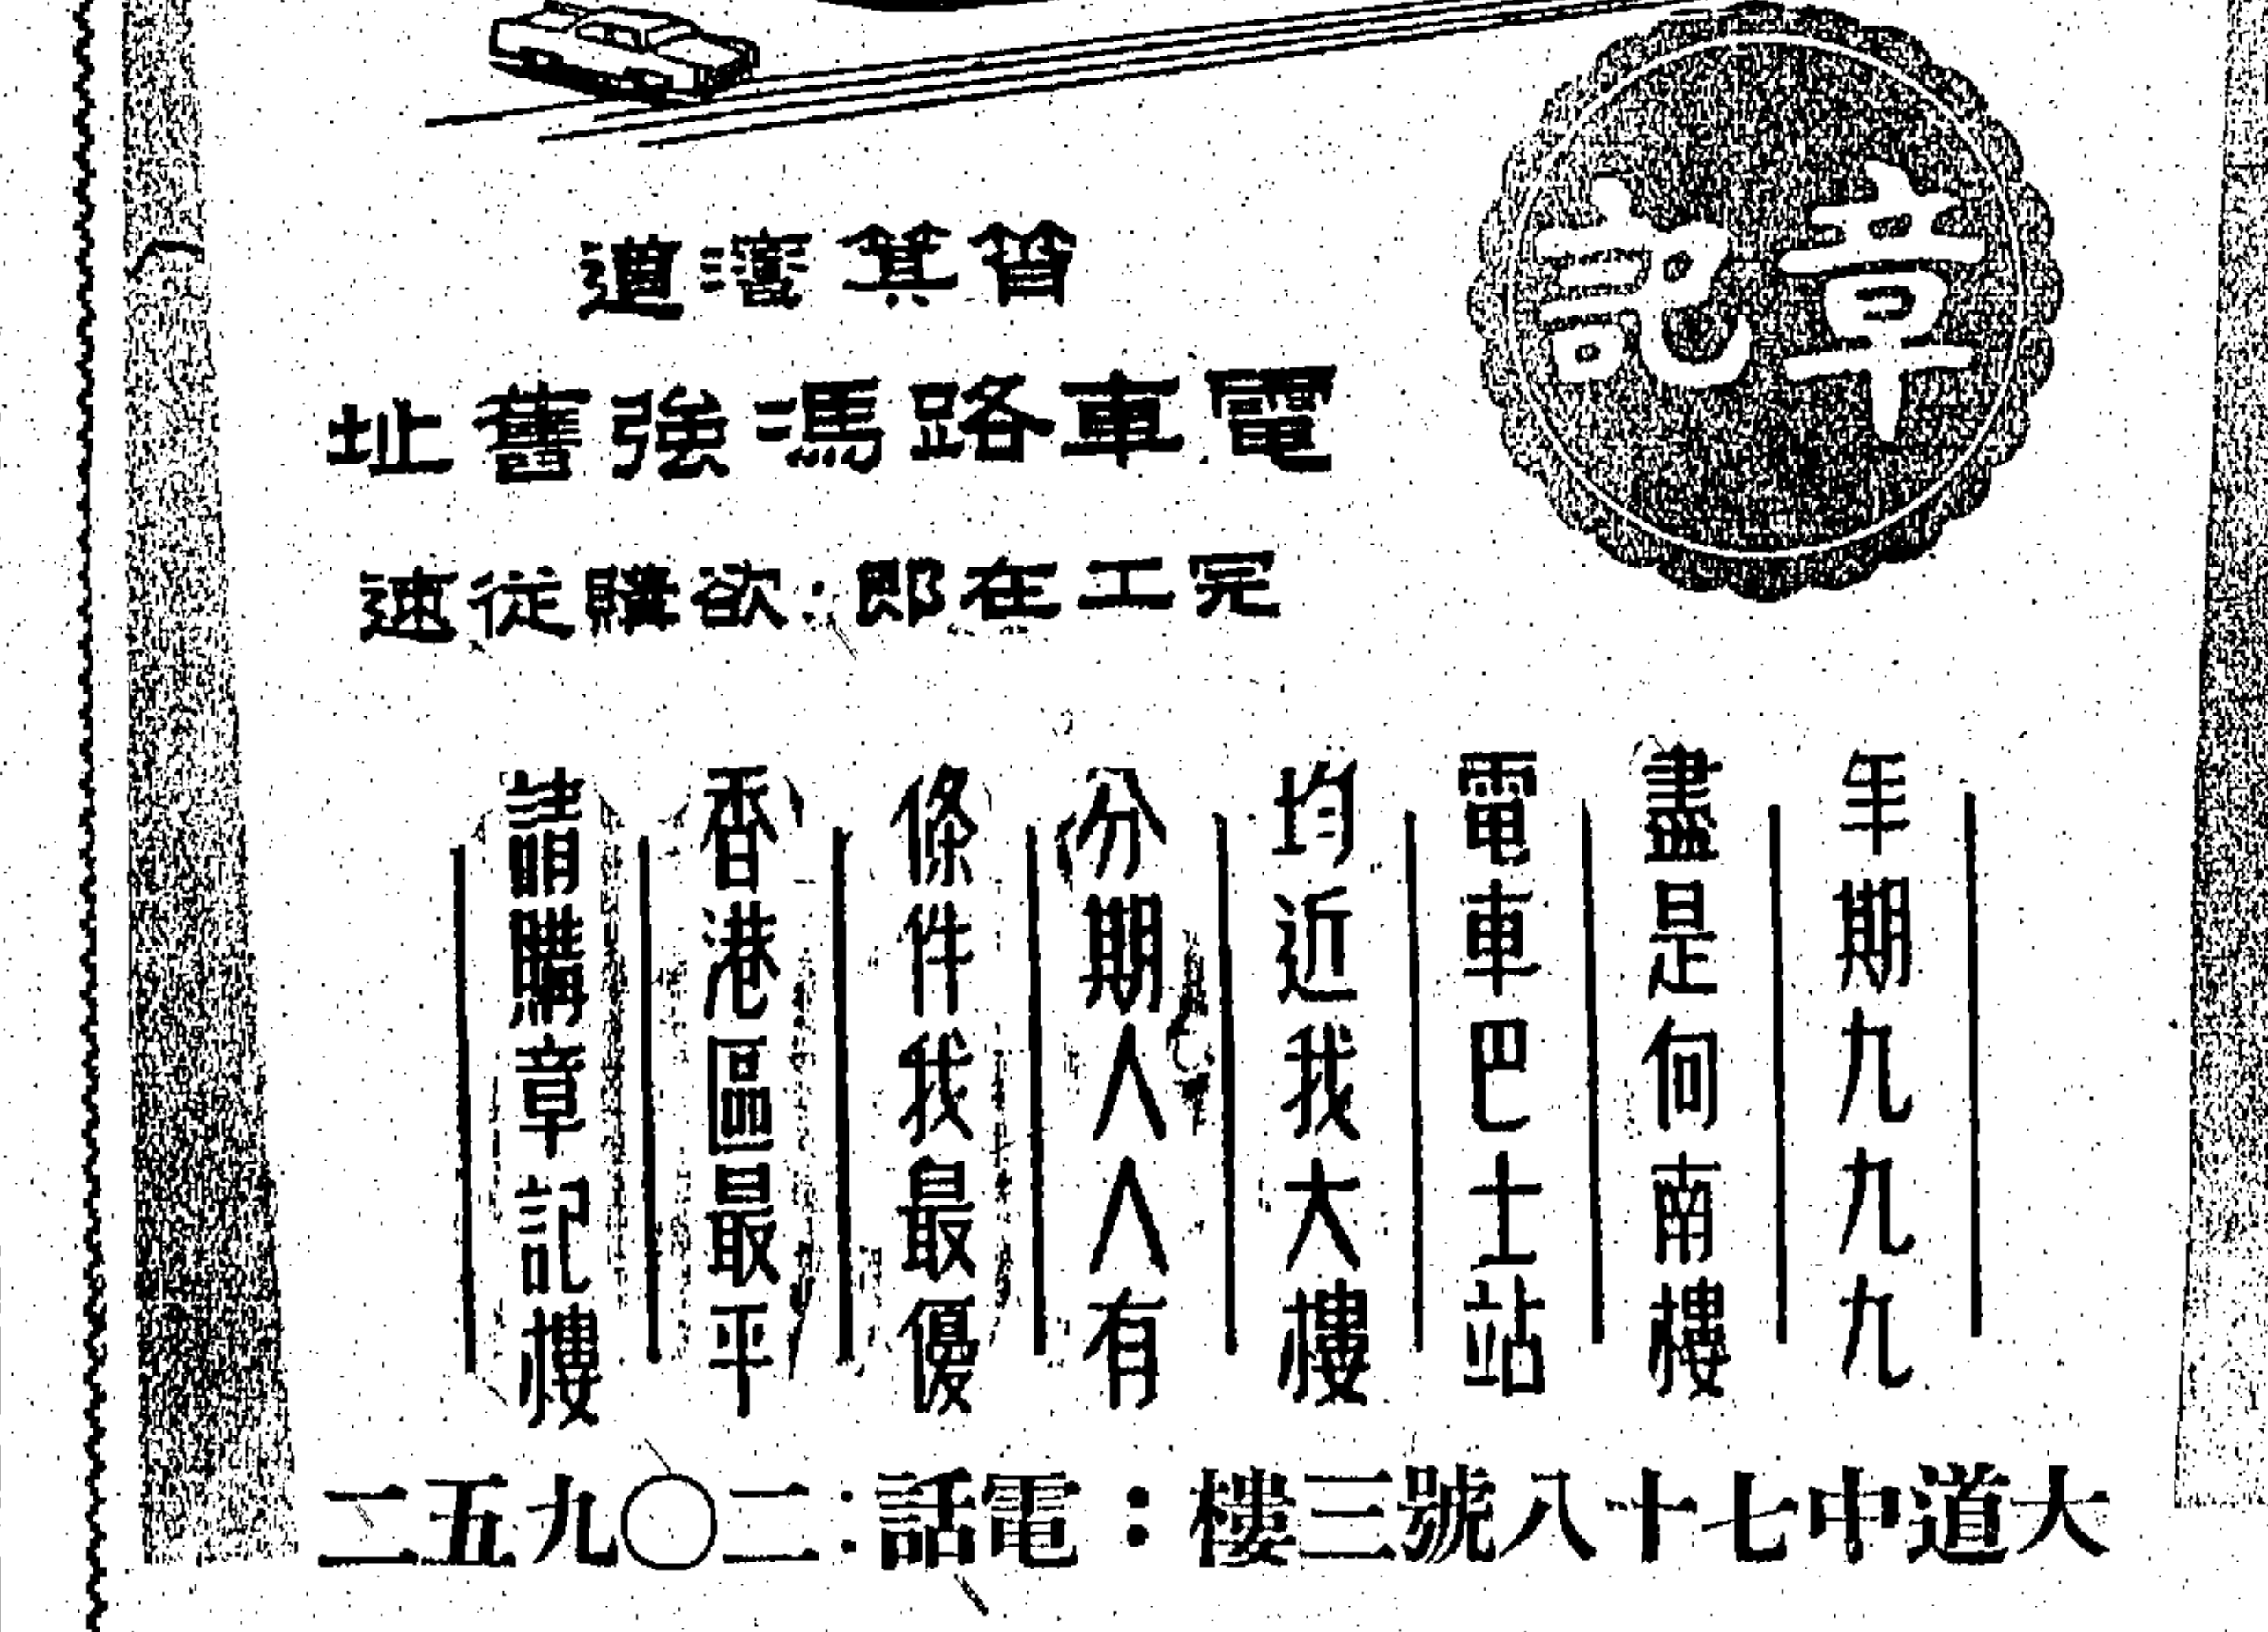 章記
筲箕灣道
電車路馮強舊址
完工在即:欲購從速
年期九九九
盡是向南樓
電車巴士站
均近我大樓
分期人人有
條件我最優
香港區最平
請購章記樓
大道中七十八號三樓：電話:二〇九五二